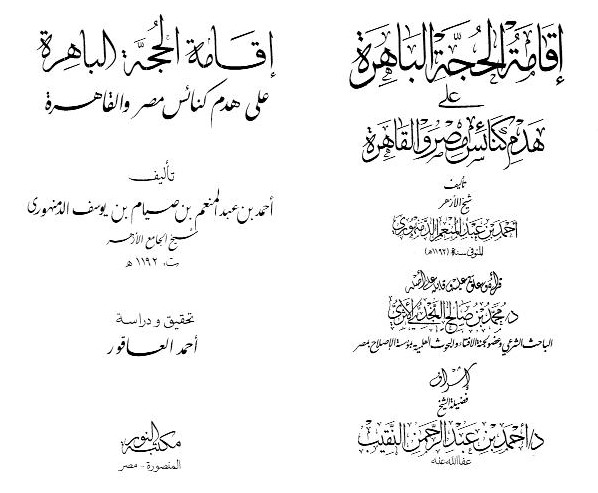 إقامة الحجة الباهرة
على
هدم كنائس مصر والقاهرة
تأليف
شيخ الأزهر
أحمد بن عبد المنعم الدمنهوري
المتوفى سنة (١١٩٢هـ)
د/ محمد بن صالح
الباحث الشرعي وعضو لجنة الإفتاء والبحوث العلمية بمؤسسة الإصلاح بمصر
إشراف
فضيلة الشيخ
د/ أحمد بن عبد الرحمن النقيب
عفا الله عنه
إقامة الحجة الباهرة
على هدم كنائس مصر والقاهرة
تأليف
أحمد بن عبد المنعم بن صيام بن يوسف الدمنهوري
شيخ الجامع الأزهر
ت، ١١٩٢ هـ
تحقيق ودراسة
أحمد العاقور
مكتبة النور
المنصورة - مصر